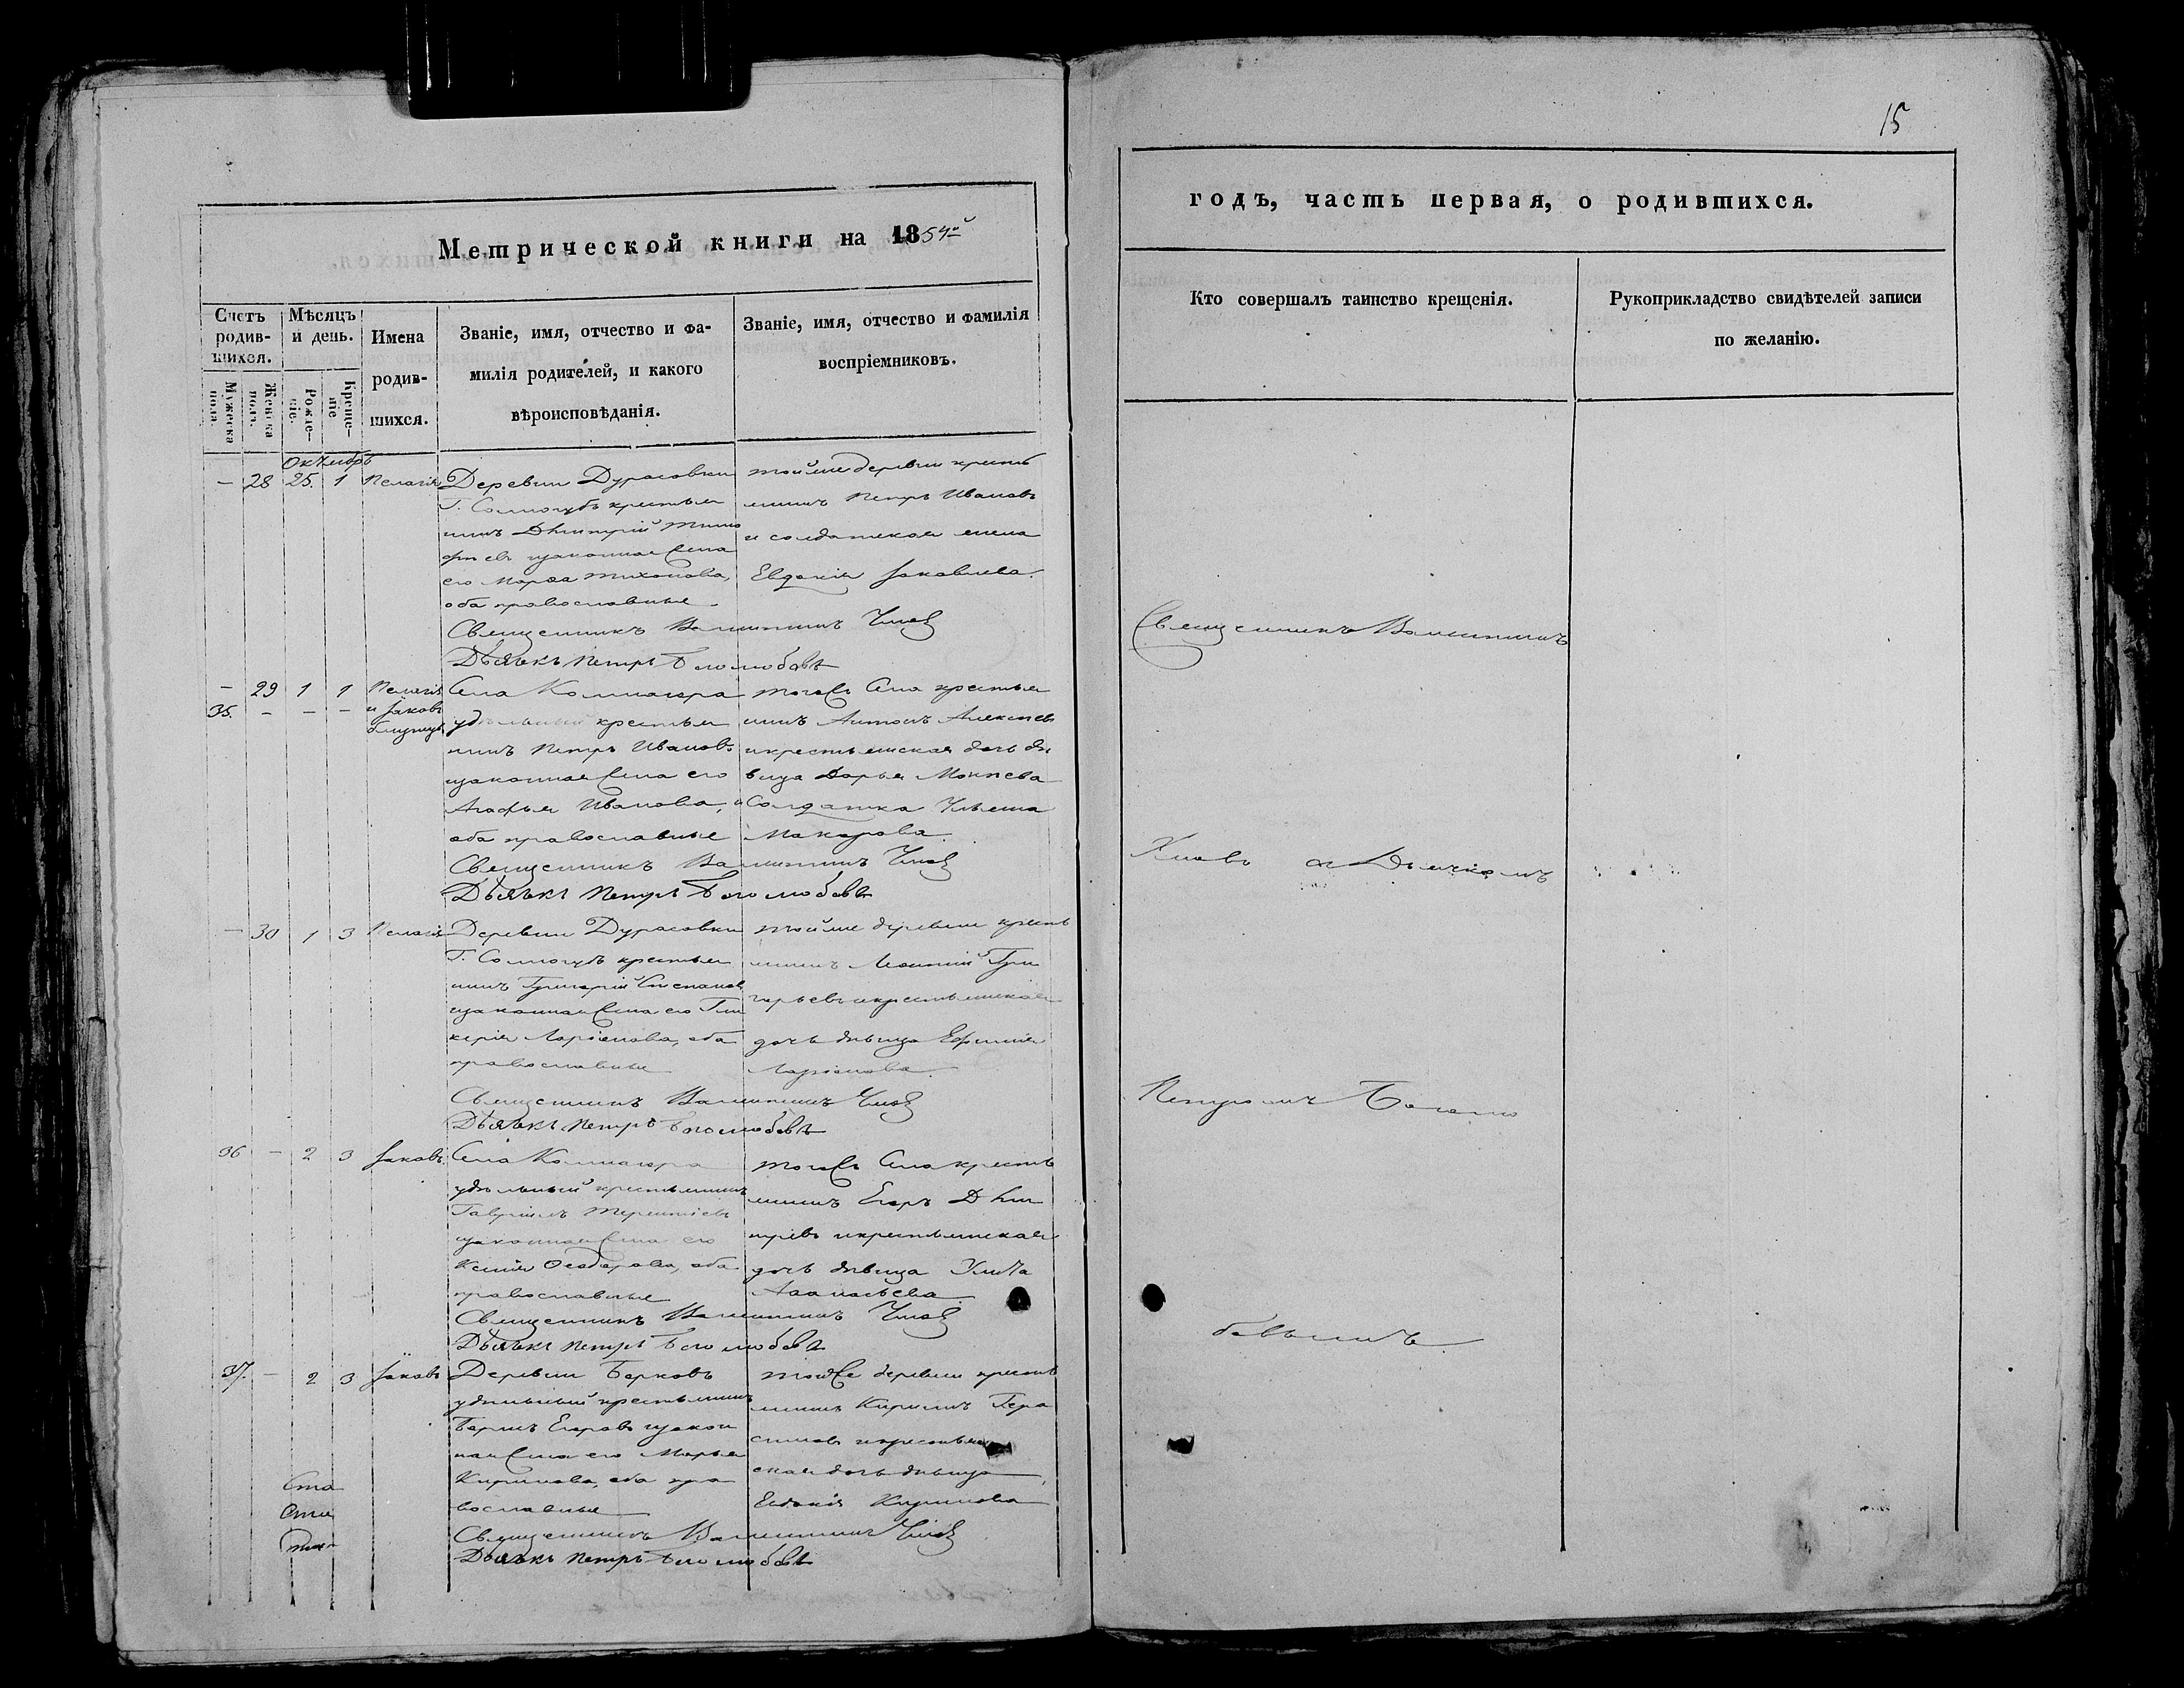 15
Метрической книги на 1854й
годъ, часть первая, о родившихся.
Счетъ родив-шихся.
Мужеска пола
Женска пола.
Мѣсяцъ и день.
Рожде-ніе.
Креще-ніе
Имена родив-шихся.
Званіе, имя, отчество и фа-
милія родителей, и какого
вѣроисповѣданія.
Званіе, имя, отчество и фамилія
воспріемниковъ.
Кто совершалъ таинство крещенія.
Рукоприкладство свидѣтелей записи
по желанію.
Октябрь
— 28 25. 1 Пелагія
Деревни Дурасовки
Г. Солногубъ крестья
нинъ Дмитрій Тимо
фѣевъ изаконная Жена
его Марѳа Тихонова,
оба православные
тойже деревни кресть
янинъ Петръ Ивановъ
и солдатская жена
Евдокія Яковлева.
Священникъ Валентинъ
Дьячекъ Петръ Боголюбовъ
— 29 1 1 Пелагія
35. — — — и Іаковъ
близнецы
Села
удѣльный крестья
нинъ Петръ Ивановъ
изаконная Жена его
Агафья Иванова,
оба православные
тогожъ Села крестья
нинъ Антонъ Алексѣевъ
икрестьянская дочь дѣ
вица Дарья Мокѣева
и Солдатка
Макарова.
Священникъ Валентинъ
Дьячекъ Петръ Боголюбовъ
— 30 1 3 Пелагія
Деревни Дурасовки
Г. Солногубъ крестья
нинъ Григорій Степановъ
изаконная Жена его Гли
керія Ларіонова, оба
православные
тойже деревни кресть
янинъ Леонтій Гри
горьевъ икрестьянская
дочь дѣвица Ефимія
Ларіонова.
Священникъ Валентинъ
Дьячекъ Петръ Боголюбовъ
36 — 2 3 Іаковъ.
Села
удѣльный крестьянинъ
Гавріилъ Терентіевъ
изаконная Жена его
Ксенія Ѳеодорова, оба
православные
тогожъ Села кресть
янинъ Егоръ Дми
тріевъ икрестьянская
дочь дѣвица
Аѳанасьева
Священникъ Валентинъ
Дьячекъ Петръ Боголюбовъ
37. — 2 3 Іаковъ
Деревни Борковъ
удѣльный крестьянинъ
Борисъ Егоровъ изакон
ная Жена его Марья
Кирилова, оба пра
вославные
тойже деревни кресть
янинъ Кирилъ Гера
симовъ икрестьян
ская дочь дѣвица
Евдокія Кирилова
Священникъ Валентинъ
Дьячекъ Петръ Боголюбовъ
Священникъ Валентинъ
съ Дьячкомъ
Петромъ Боголю
бовымъ.